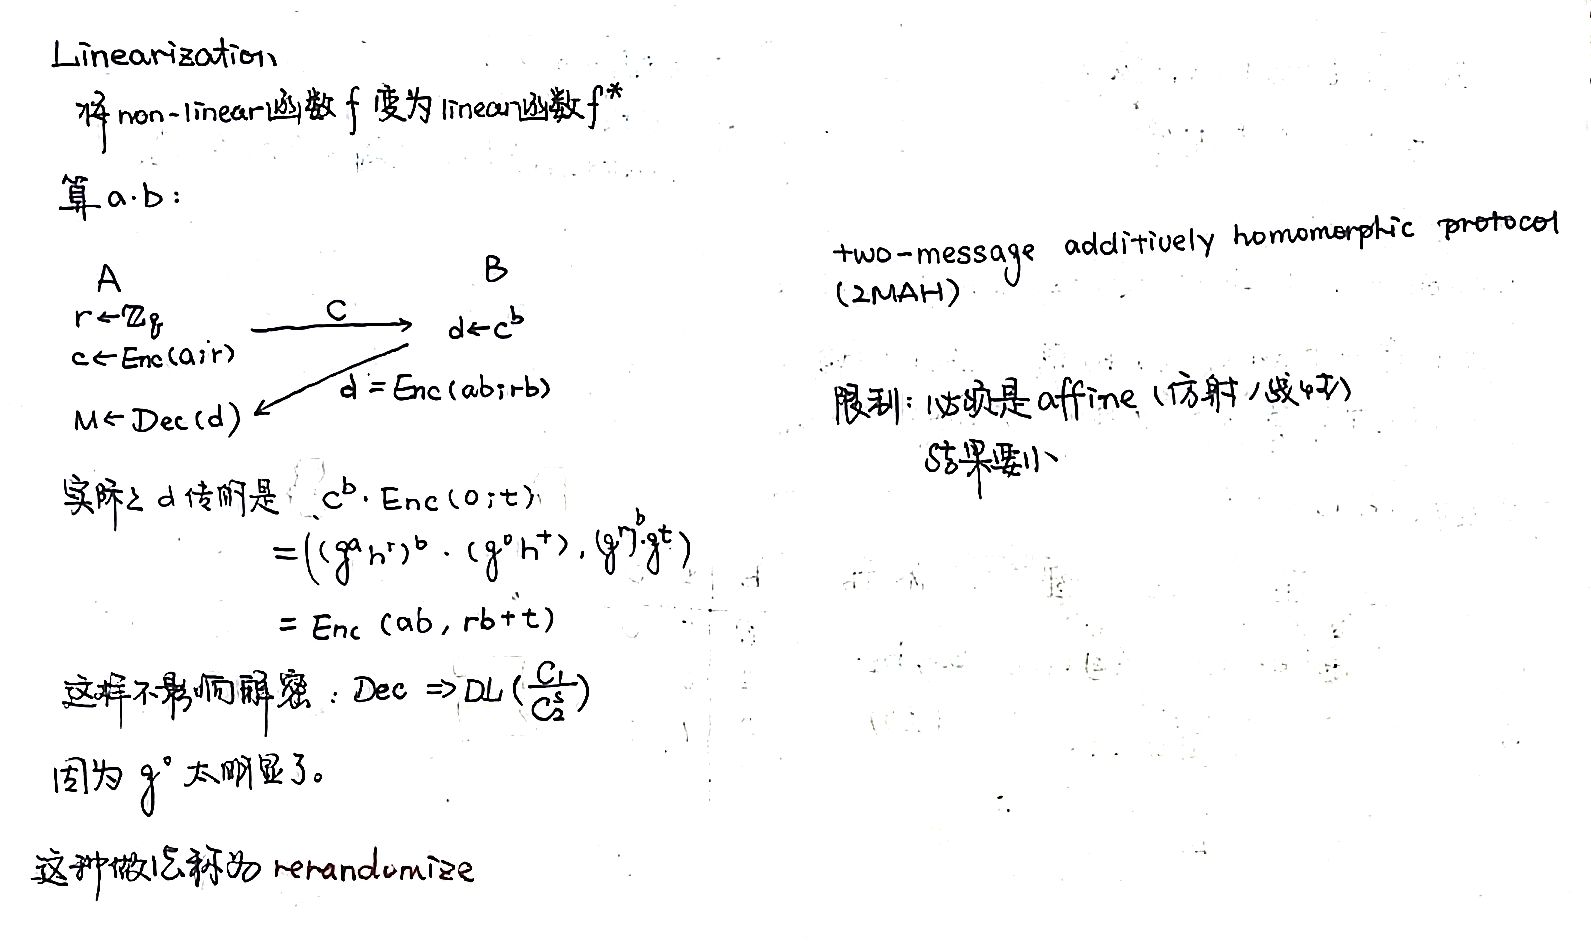 Linearization
将non-linear函数f 变为linear函数f*
算a·b:
A
r←ℤq
c←Enc(a;r)
C
B
d←c^b
d = Enc(ab;rb)
M←Dec(d)
实际上d传的是 c^b · Enc(0;t)
=((g^a h^r)^b · (g^0 h^t), (g^r)^b · g^t)
= Enc (ab, rb+t)
这样不影响解密: Dec ⇒ DL(C₁/C₂^s)
因为 g^0 太明显了。
这种做法称为 rerandomize
two-message additively homomorphic protocol
(2MAH)
限制: 必须是affine (仿射/线性)
结果要小